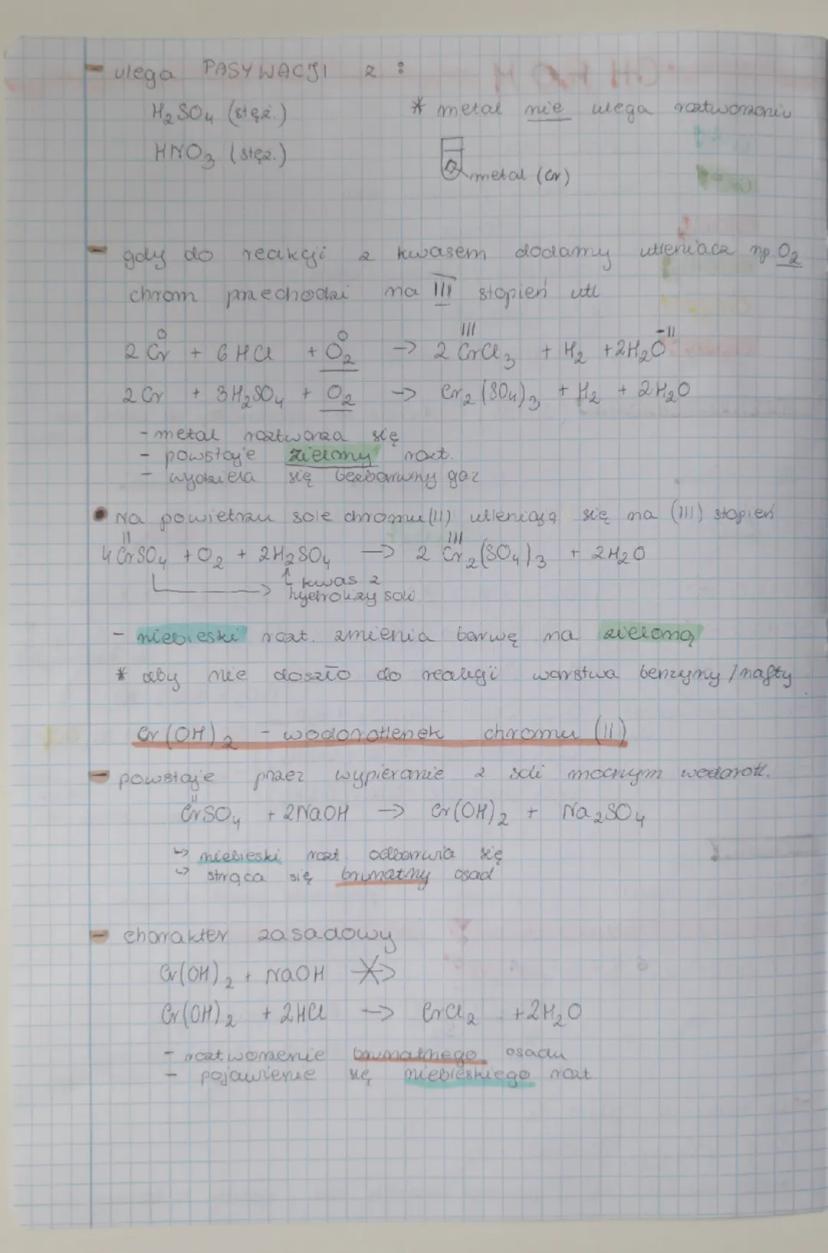 - ulega PASYWACJI z :
H₂SO₄ (stęż.) * metal nie ulega roztworzeniu
HNO₃ (stęż.)
metal (Cr)
- gdy do reakcji z kwasem dodamy utleniacz np. O₂
chrom przechodzi na III stopień utl
0 0 III -II
2 Cr + 6 HCl + O₂ → 2 CrCl₃ + H₂ + 2H₂O
2 Cr + 3H₂SO₄ + O₂ → Cr₂(SO₄)₃ + H₂ + 2H₂O
- metal roztwarza się
- powstaje zielony rozt.
- wydziela się bezbarwny gaz
• Na powietrzu sole chromu (II) utleniają się na (III) stopień
II III
4 CrSO₄ + O₂ + 2H₂SO₄ → 2 Cr₂(SO₄)₃ + 2H₂O
↑ kwas z
hydrolizy soli
- niebieski rozt. zmienia barwę na zieloną
* aby nie doszło do reakcji warstwa benzyny / nafty
Cr(OH)₂ - wodorotlenek chromu (II)
- powstaje przez wypieranie z soli mocnym wodorotl.
II
CrSO₄ + 2NaOH → Cr(OH)₂ + Na₂SO₄
↳ niebieski rozt odbarwia się
↳ strąca się brunatny osad
- charakter zasadowy
Cr(OH)₂ + NaOH ↛
Cr(OH)₂ + 2HCl → CrCl₂ + 2H₂O
- roztworzenie brunatnego osadu
- pojawienie się niebieskiego rozt